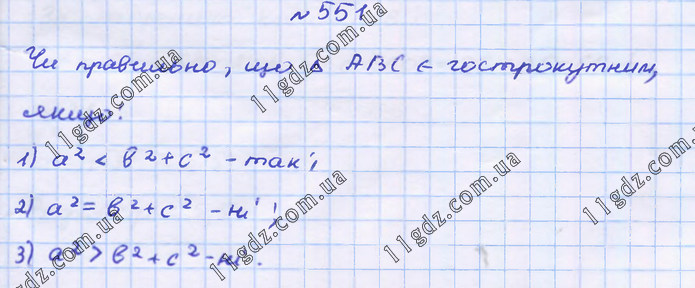 №551
Чи правильно, що △ ABC є гострокутним,
якщо:
1) a² < b² + c² - так;
2) a² = b² + c² - ні;
3) a² > b² + c² - ні.
11gdz.com.ua
11gdz.com.ua
11gdz.com.ua
11gdz.com.ua
11gdz.com.ua
11gdz.com.ua
11gdz.com.ua
11gdz.com.ua